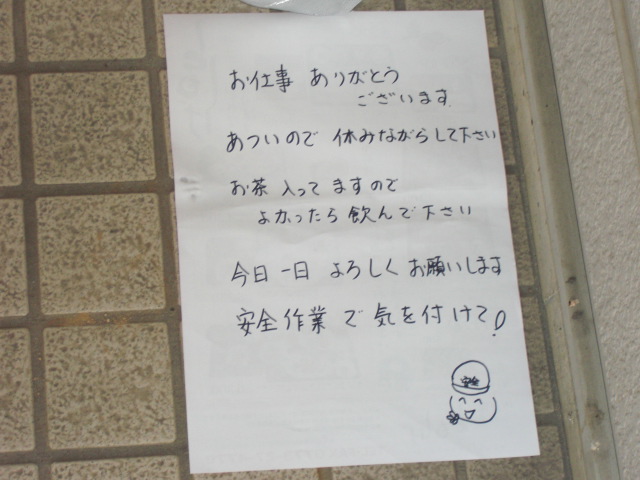 お仕事 ありがとう
ございます
あついので 休みながらして下さい
お茶 入ってますので
よかったら 飲んで下さい
今日一日 よろしく お願いします
安全作業で気を付けて!
安全